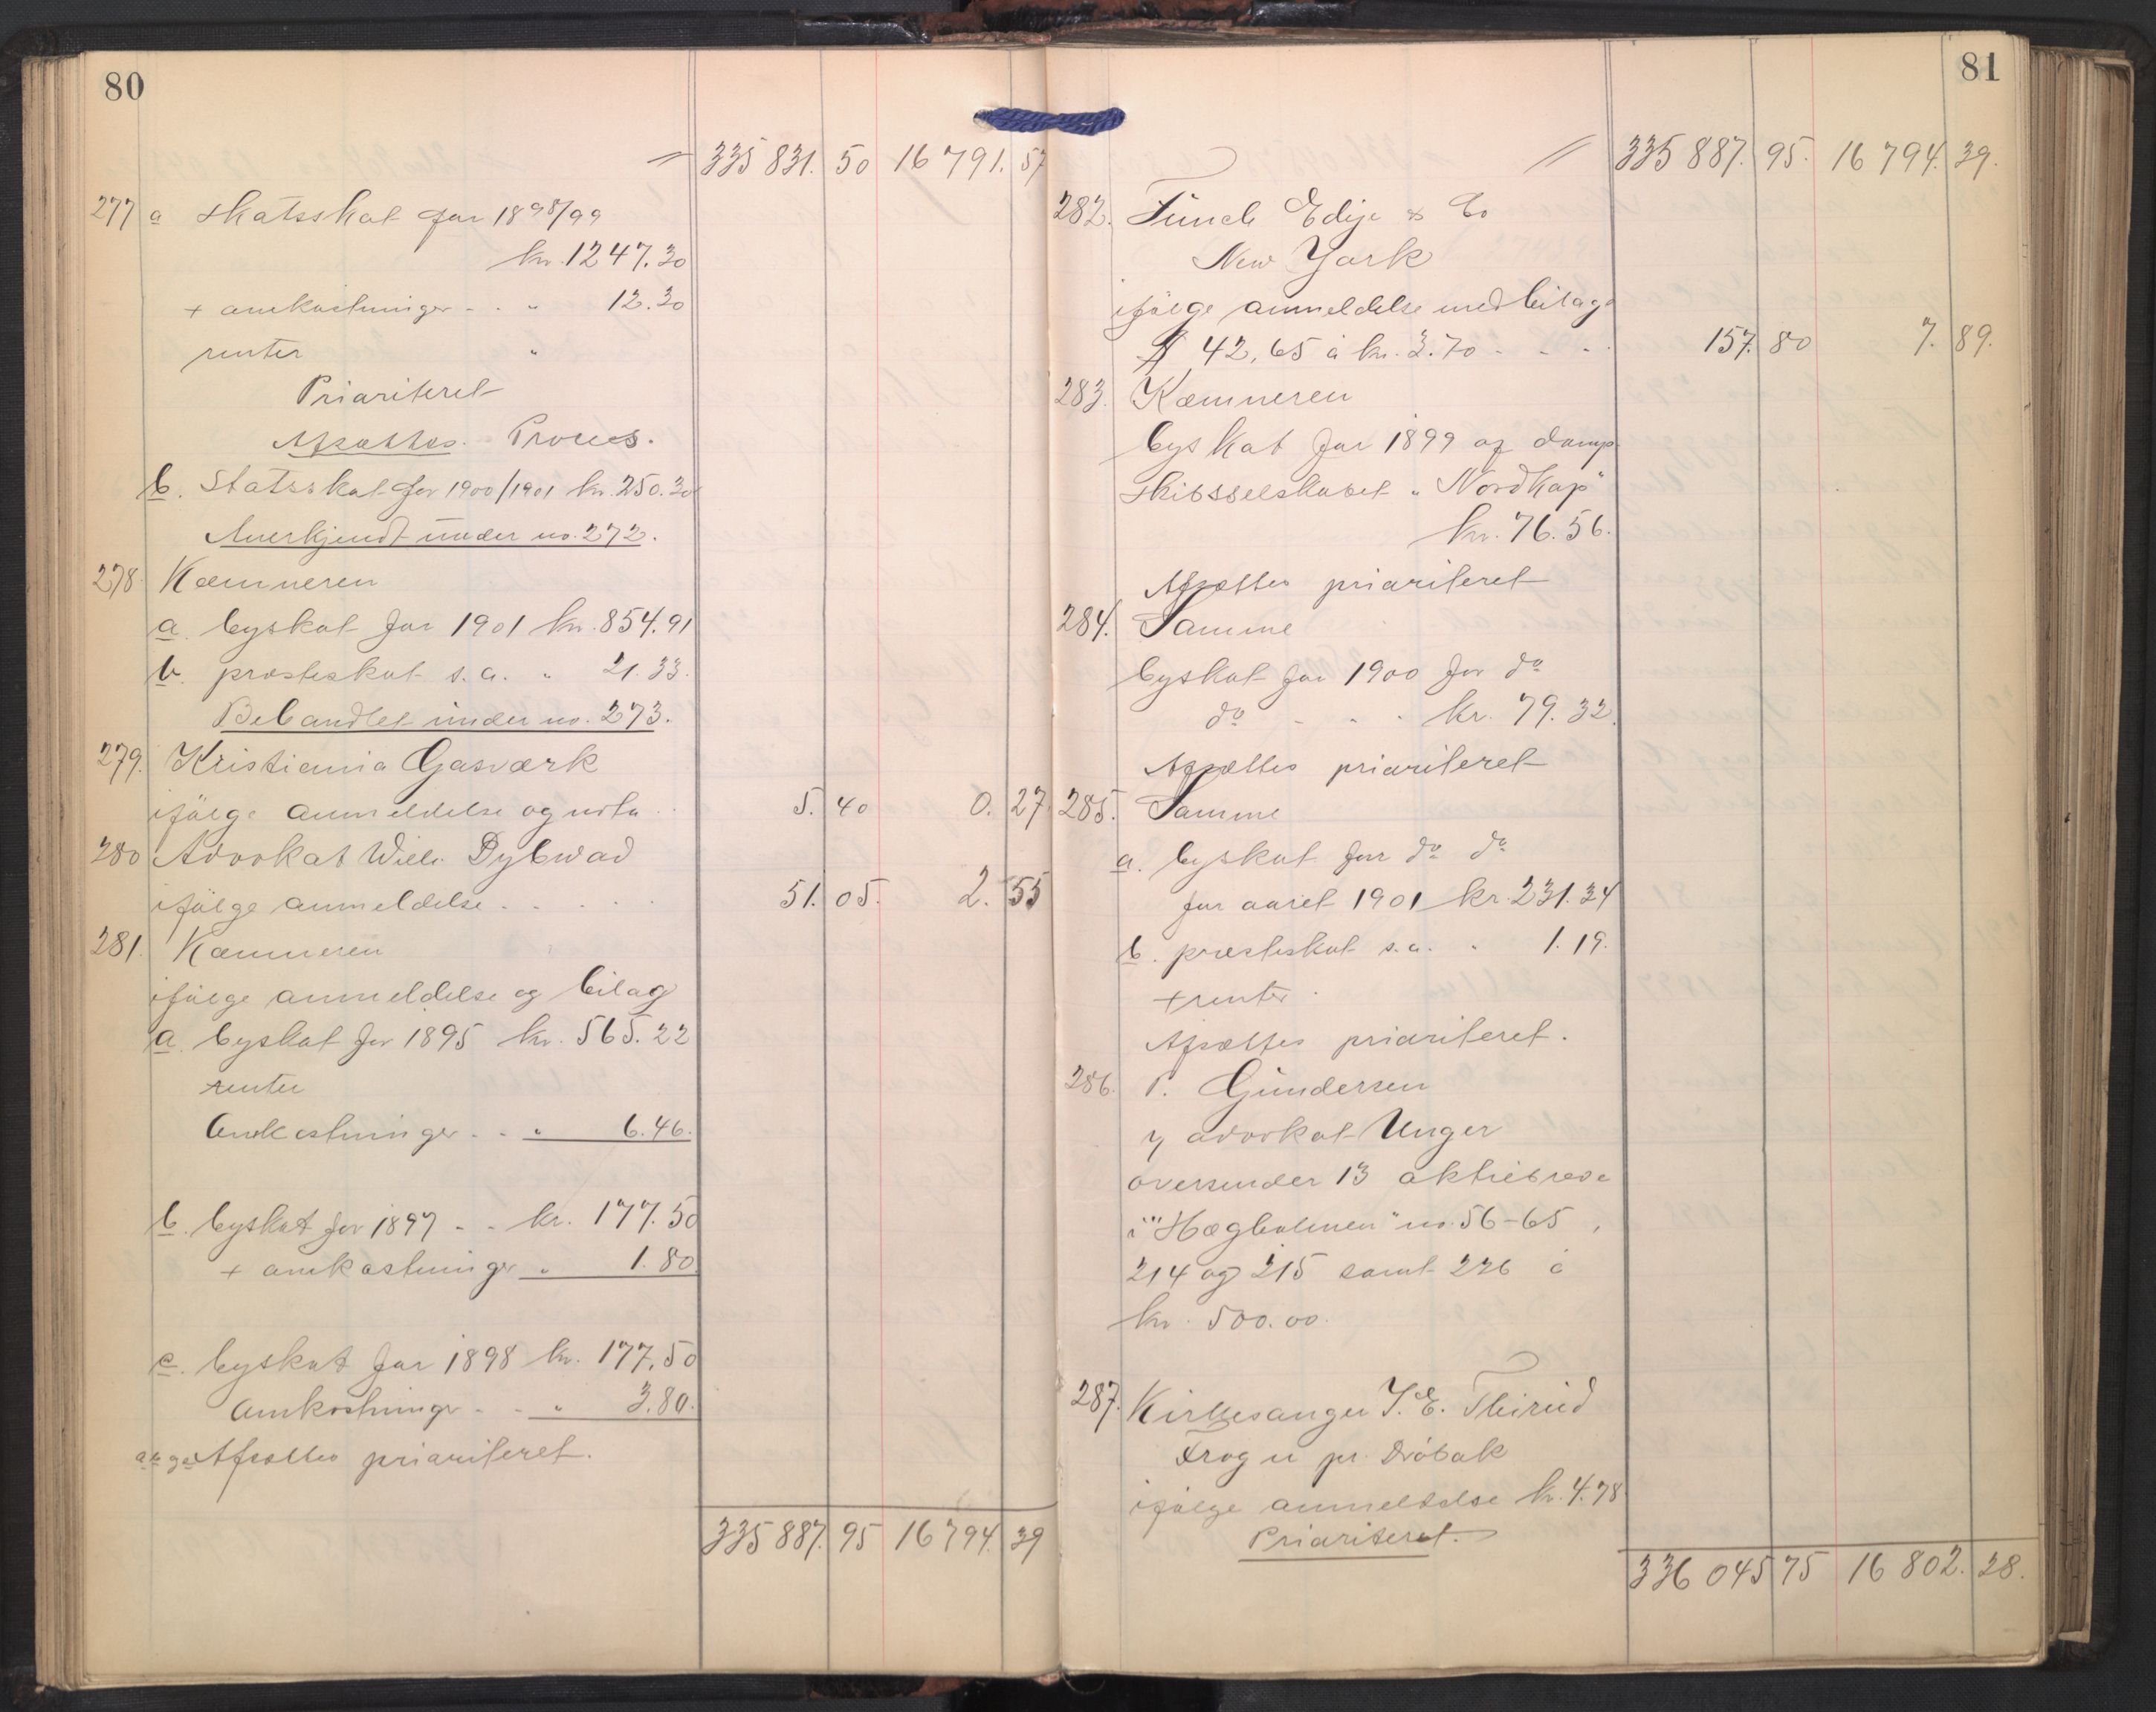 80
335 831. 50 16 791. 57
277 a Statsskat for 1898/99
kr. 1247.30
+ omkostninger - - " 12.30
renter "
Prioriteret
Afsættes. Proces.
b. Statsskat for 1900/1901 kr. 250.30
Anerkjendt under no. 272.
278. Kæmneren
a. byskat for 1901 kr. 854.91
b. presteskat s.a. " 21.33.
Behandlet under no. 273.
279. Kristiania Gasværk
ifølge anmeldelse og nota 5. 40 0. 27
280 Advokat Wilh. Dybwad
ifølge anmeldelse . . . . 51. 05. 2. 55
281. Kæmneren
ifølge anmeldelse og bilag
a. byskat for 1895 kr. 565.22
renter
Omkostninger - - " 6.46.
b. byskat for 1897 - - kr. 177.50
+ omkostninger " 1.80
c. byskat for 1898 kr. 177.50
Omkostninger - - " 3.80.
Afsættes prioriteret.
335 887. 95 16 794. 39
81
335 887. 95. 16 794. 39.
282. Funch Edije & Co
New York
ifølge anmeldelse med bilag
$ 42,65 à kr. 3.70 - - - 157. 80 7. 89.
283. Kæmneren
byskat for 1899 af damp
skibsselskabet "Nordkap"
kr. 76.56.
Afsættes prioriteret
284. Samme
byskat for 1900 for do
do - - - kr. 79.32.
Afsættes prioriteret
285. Samme
a. byskat for do do
for aaret 1901 kr. 231.34
b. presteskat s.a. " 1.19.
+ renter
Afsættes prioriteret.
286. P. Gundersen
v/ advokat Unger
oversender 13 aktiebreve
i "Hægholmen" no. 56-65,
214 og 215 samt 226 à
kr. 500.00.
287. Kirkesanger J. E. Thirud
Frogn pr. Drøbak
ifølge anmeldelse kr. 4.78
Prioriteret.
336 045 75 16 802. 28.